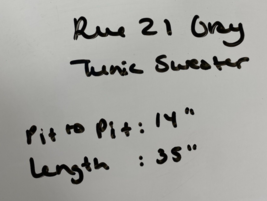 Rue 21 Gray
Tunic Sweater
Pit to Pit: 14"
Length : 35"